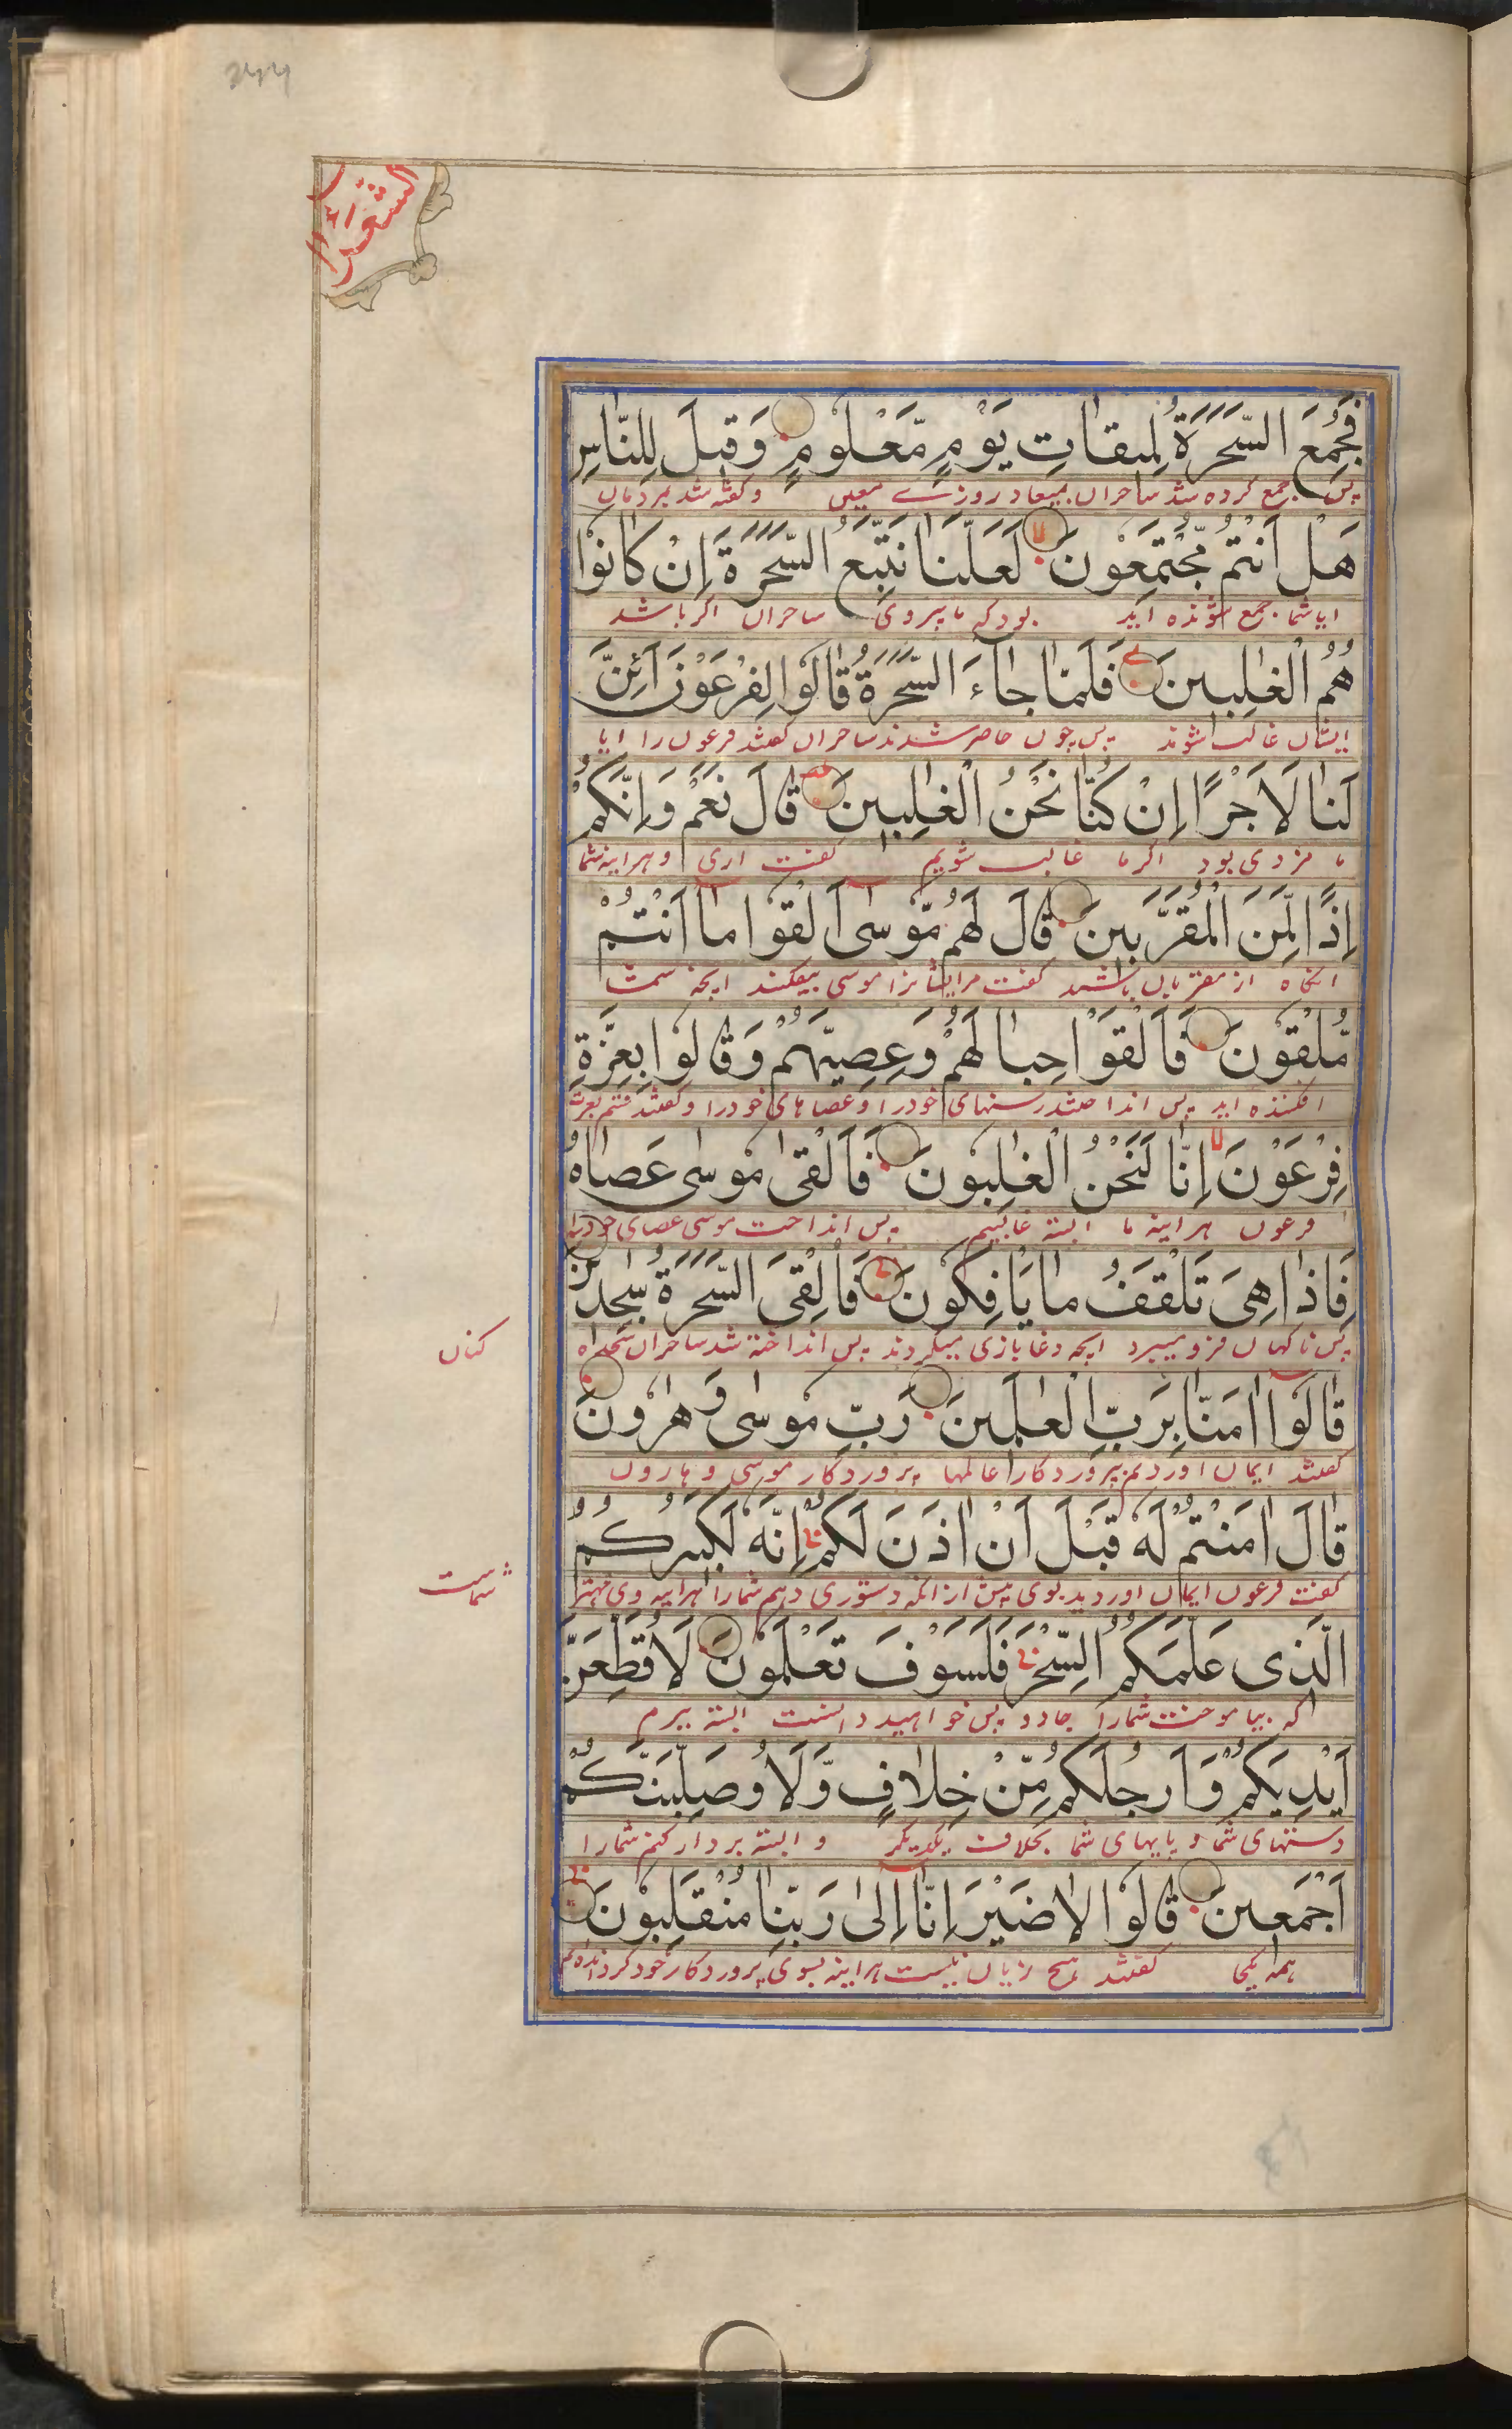 الشعراء
فَجُمِعَ السَّحَرَةُ لِمِيقَاتِ يَوْمٍ مَّعْلُومٍ وَقِيلَ لِلنَّاسِ
پس جمع کرده شد ساحران بمیعاد روزے معین وگفته شد مردمان
هَلْ اَنْتُمْ مُّجْتَمِعُونَ لَعَلَّنَا نَتَّبِعُ السَّحَرَةَ اِنْ كَانُوْا
ایا شما جمع شونده اید بود که ما پیروی ساحران اگر باشد
هُمُ الْغٰلِبِينَ فَلَمَّا جَآءَ السَّحَرَةُ قَالُوا لِفِرْعَوْنَ اَئِنَّ
ایشان غالب شوند پس چون حاضر شدند ساحران گفتند فرعون را ایا
لَنَا لَاَجْرًا اِنْ كُنَّا نَحْنُ الْغٰلِبِينَ قَالَ نَعَمْ وَاِنَّكُمْ
ما مزدی بود اگر ما غالب شویم گفت اری وهراینه شما
اِذًا لَّمِنَ الْمُقَرَّبِينَ قَالَ لَهُمْ مُّوسٰى اَلْقُوا مَا اَنْتُمْ
انگاه از مقربان باشید گفت مرایشانرا موسی بیفکنید
مُّلْقُونَ فَاَلْقَوْا حِبَالَهُمْ وَعِصِيَّهُمْ وَقَالُوا بِعِزَّةِ
افکننده اید پس انداختند رسنهای خودرا وعصاهای خودرا وگفتند قسم بعزت
فِرْعَوْنَ اِنَّا لَنَحْنُ الْغٰلِبُونَ فَاَلْقٰى مُوسٰى عَصَاهُ
فرعون هراینه ما البته غالبیم پس انداخت موسی عصای خودرا
فَاِذَا هِىَ تَلْقَفُ مَا يَاْفِكُونَ فَاُلْقِىَ السَّحَرَةُ سٰجِدِيْنَ
پس ناگهان فرو میبرد انچه دغا بازی میکردند پس انداخته شد ساحران سجده
کنان
قَالُوا اٰمَنَّا بِرَبِّ الْعٰلَمِينَ رَبِّ مُوسٰى وَهٰرُونَ
گفتند ایمان اوردیم پروردگار عالمها پروردگار موسی و هارون
قَالَ اٰمَنْتُمْ لَهٗ قَبْلَ اَنْ اٰذَنَ لَكُمْ اِنَّهٗ لَكَبِيرُكُمُ
گفت فرعون ایمان اوردید بوی پیش ازانکه دستوری دهم شمارا هراینه وی مهتر
شماست
الَّذِى عَلَّمَكُمُ السِّحْرَ فَلَسَوْفَ تَعْلَمُونَ لَاُقَطِّعَنَّ
که بیاموخت شمارا جادو پس خواهید دانست البته ببرم
اَيْدِيَكُمْ وَاَرْجُلَكُمْ مِّنْ خِلَافٍ وَّلَاُوصَلِّبَنَّكُمْ
دستهای شما و پایهای شما بخلاف یکدیگر و البته بردار کنم شمارا
اَجْمَعِينَ قَالُوا لَا ضَيْرَ اِنَّا اِلٰى رَبِّنَا مُنْقَلِبُونَ
همه یکجا گفتند هیچ زیان نیست هراینه بسوی پروردگار خود